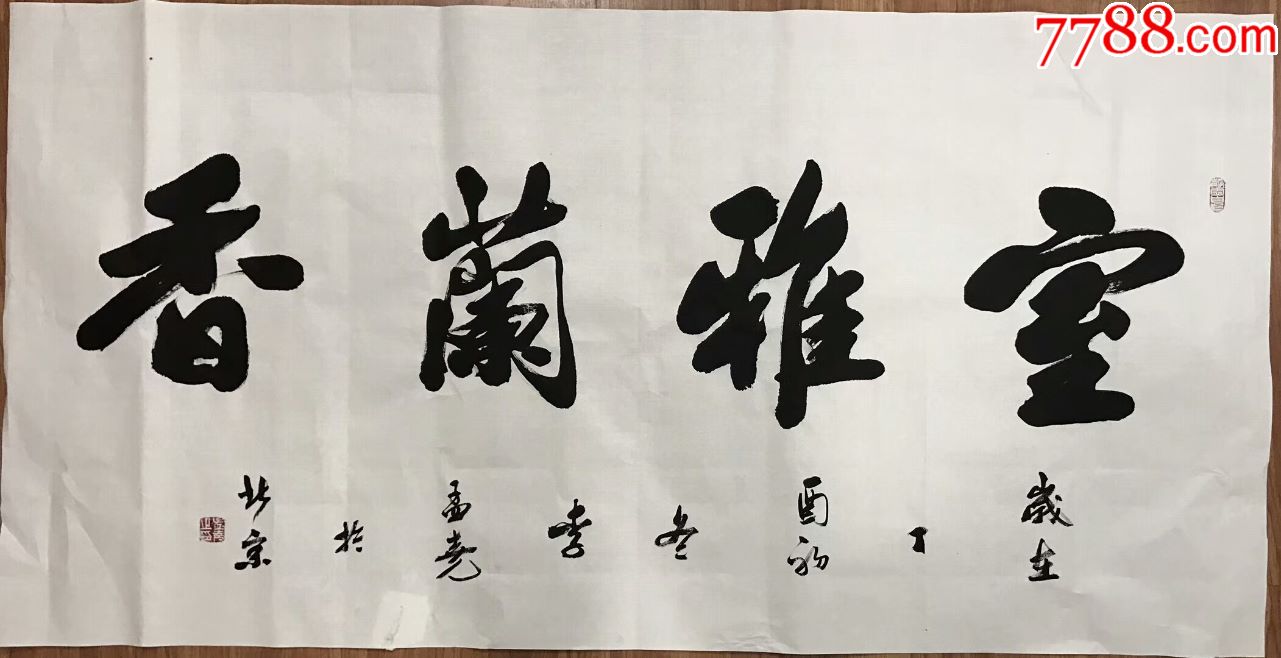 7788.com
室雅蘭香
歲在丁酉初冬李孟堯於北京